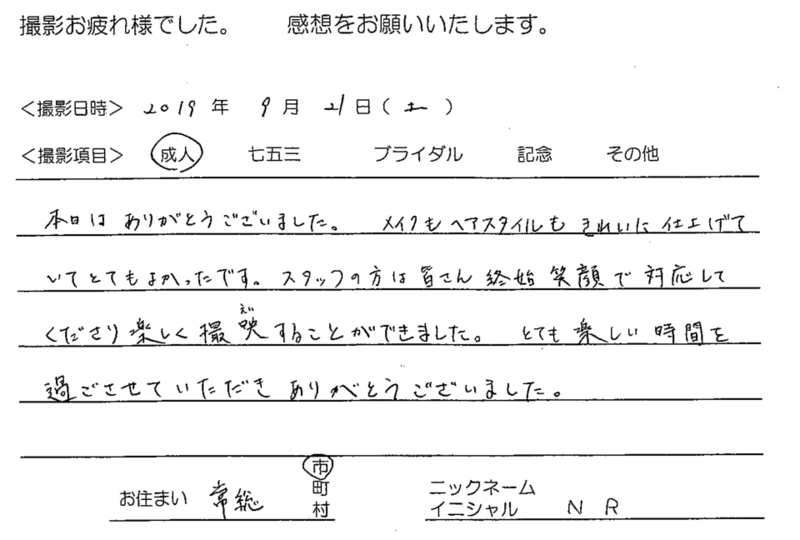 撮影お疲れ様でした。 感想をお願いいたします。
<撮影日時> 2019 年 9 月 21 日 ( 土 )
<撮影項目> 成人 七五三 ブライダル 記念 その他
本日は ありがとうございました。 メイクも ヘアスタイルも きれいに 仕上げて
いてとてもよかったです。スタッフの方は皆さん 終始 笑顔で 対応して
くださり 楽しく 撮映(えい)することができました。 とても 楽しい 時間を
過ごさせて いただき ありがとうございました。
お住まい 常総 市 町 村 ニックネーム イニシャル N R